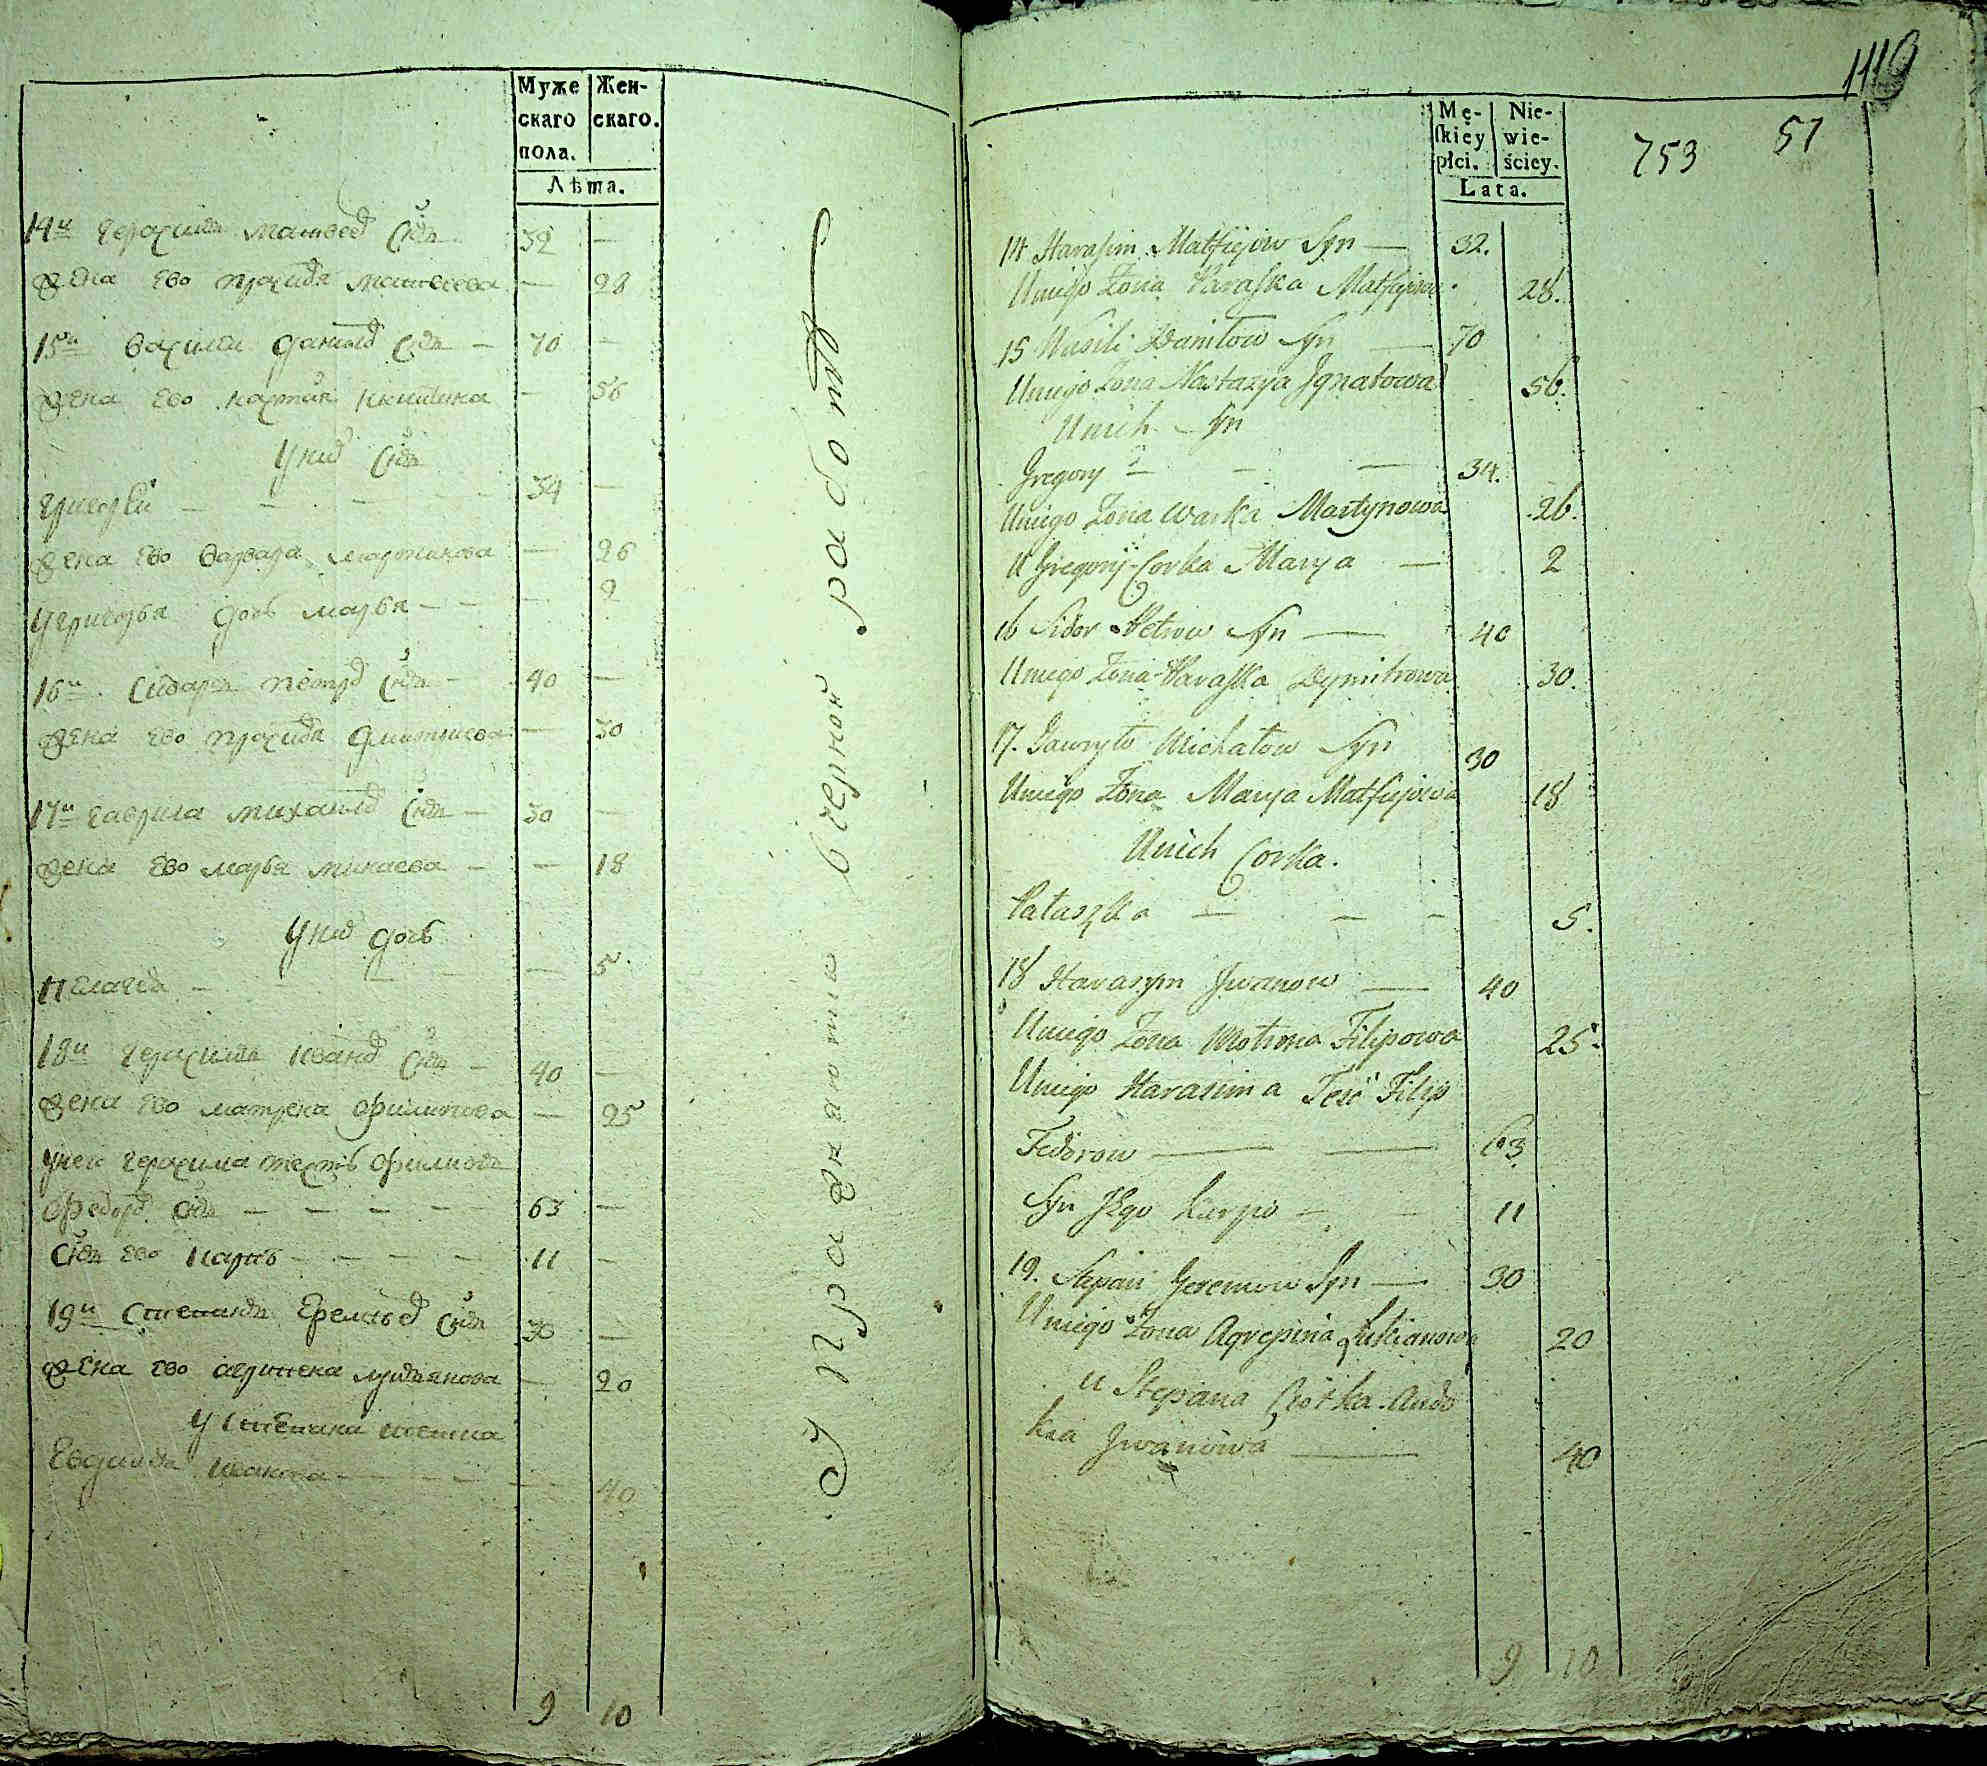 Муже
скаго
пола.
Жен-
скаго.
Лѣта.
14й Герасимъ Матвеевъ Снъ 32 —
Жена Ево Праскв Матвеева — 28
15й Василеи Даниловъ Снъ — 70 —
Жена Ево — 56
Унихъ Снъ
Григореи — — — 34 —
Жена Ево Варвара Мартинова — 26
У Григорья дочь Марья — — — 2
16й Сидаръ Петровъ Снъ — 40 —
Жена Ево Дмитриева — 30
17й Гаврила Михаиловъ Снъ — 30 —
Жена Ево Марья — — 18
Унихъ дочь
Пелагея — — — — 5
18й Герасимъ Ивановъ Снъ — 40 —
Жена Ево Матрена Филипова — 25
Унего Герасима тесть Филипъ
Федоровъ Снъ — — — — 63 —
Снъ Ево Карпъ — — — — 11 —
19й Степанъ Еремѣевъ Снъ 30 —
Жена Ево Агрипена Лукьянова — 20
У Степана
Евдокия Иванова — — — 40
9 10
Упражнаютца вчерной работѣ
1110
Mę-
ſkiey
płci.
Nie-
wie-
ściey.
Lata.
753 51
14 Harasim Matfiejow Syn — 32.
U niego Żona Paraska Matfiejowa 28.
15 Wasili Daniłow Syn — 70
U niego Żona Nastazya Ignatowa 56.
U nich Syn
Gregory — — — 34.
U niego Żona Warka Martynowa 26.
U Gregory Corka Marya — 2
16 Sidor Petrow Syn — 40
U niego Żona Paraska Dymitrowa 30.
17. Gawryło Michałow Syn 30
U niego Żona Marya Matfiejowa 18
U nich Corka.
Pałaszka — — — 5.
18 Harasym Jwanow — 40
U niego Żona Motrona Filipowa 25.
U niego Harasima Teść Filip
Fedorow — — 63
Syn Jego Karpo — — 11
19. Stepan Jeremow Syn — 30
U niego Żona Agrepina Łukianowa 20
u Stepana Ciotka Audo
kia Jwanowa — 40
9 10